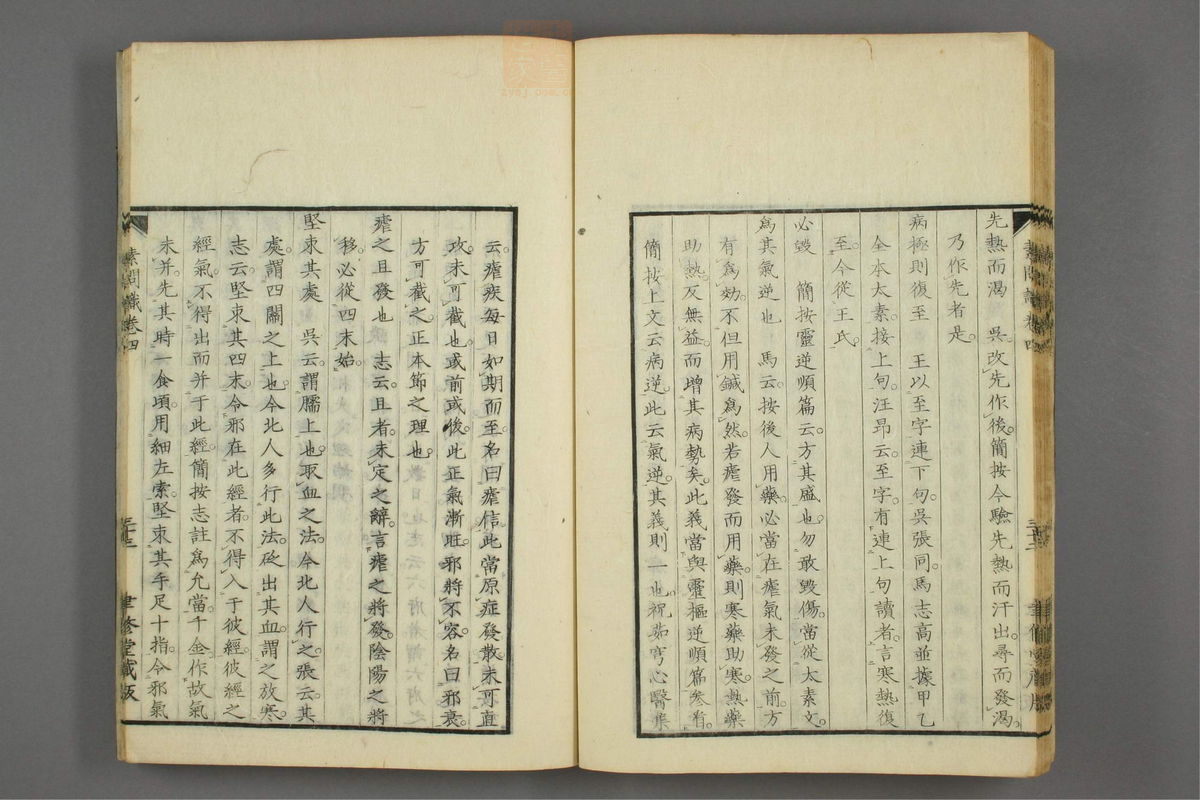 先熱而渴　吳。改先作後。簡按今驗先熱而汗出。尋而發渴。
乃作先者是。
病極則復至　王以至字連下句。吳張同。馬志高並據甲乙
全本太素接上句。汪昂云至字有連上句讀者。言寒熱復
至。今從王氏。
必毀　簡按靈逆順篇云。方其盛也。勿敢毀傷。當從太素文。
爲其氣逆也　馬云。按後人用藥。必當在瘧氣未發之前。方
有爲効。不但用鍼爲然。若瘧發而用藥。則寒藥助寒。熱藥
助熱。反無益而增其病勢矣。此義當與靈樞逆順篇參看。
簡按上文云病逆。此云氣逆。其義則一也。祝茹穹心醫集
云。瘧疾每日如期而至。名曰瘧信。此當原症發散。未可直
攻。未可截也。或前或後。此正氣漸旺。邪將不容。名曰邪衰。
方可截之。正本節之理也。
瘧之且發也　志云。且者。未定之辭。言瘧之將發。陰陽之將
移。必從四末始。
堅束其處　吳云。謂臑上也。取血之法。今北人行之。張云。其
處。謂四關之上也。今北人多行此法。砭出其血。謂之放寒。
志云。堅束其四末。令邪在此經者。不得入于彼經。彼經之
經氣。不得出而并于此經。簡按志註爲允當。千金作故氣
未并。先其時一食頃。用細左索。堅束其手足十指。令邪氣
素問識卷四
三十三
聿修堂藏版